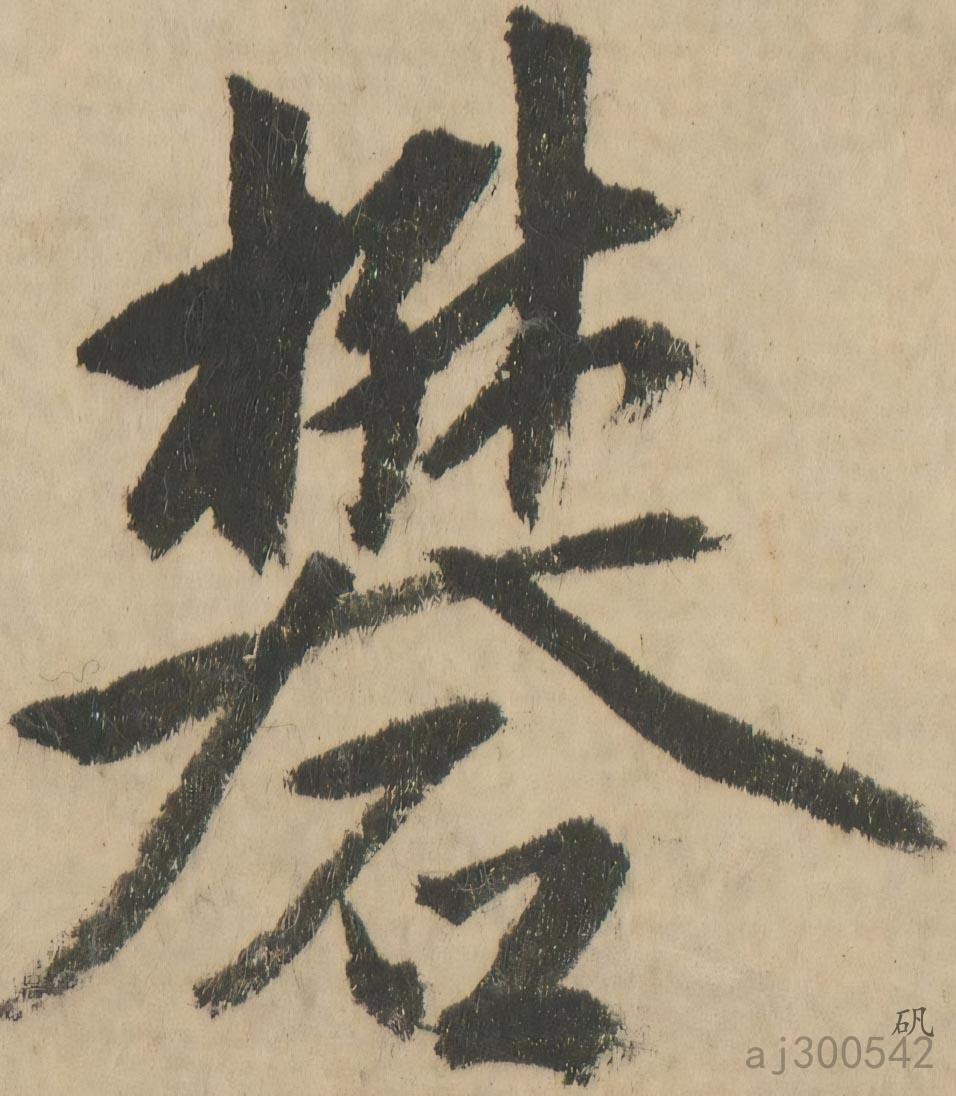 礬
矾
aj300542